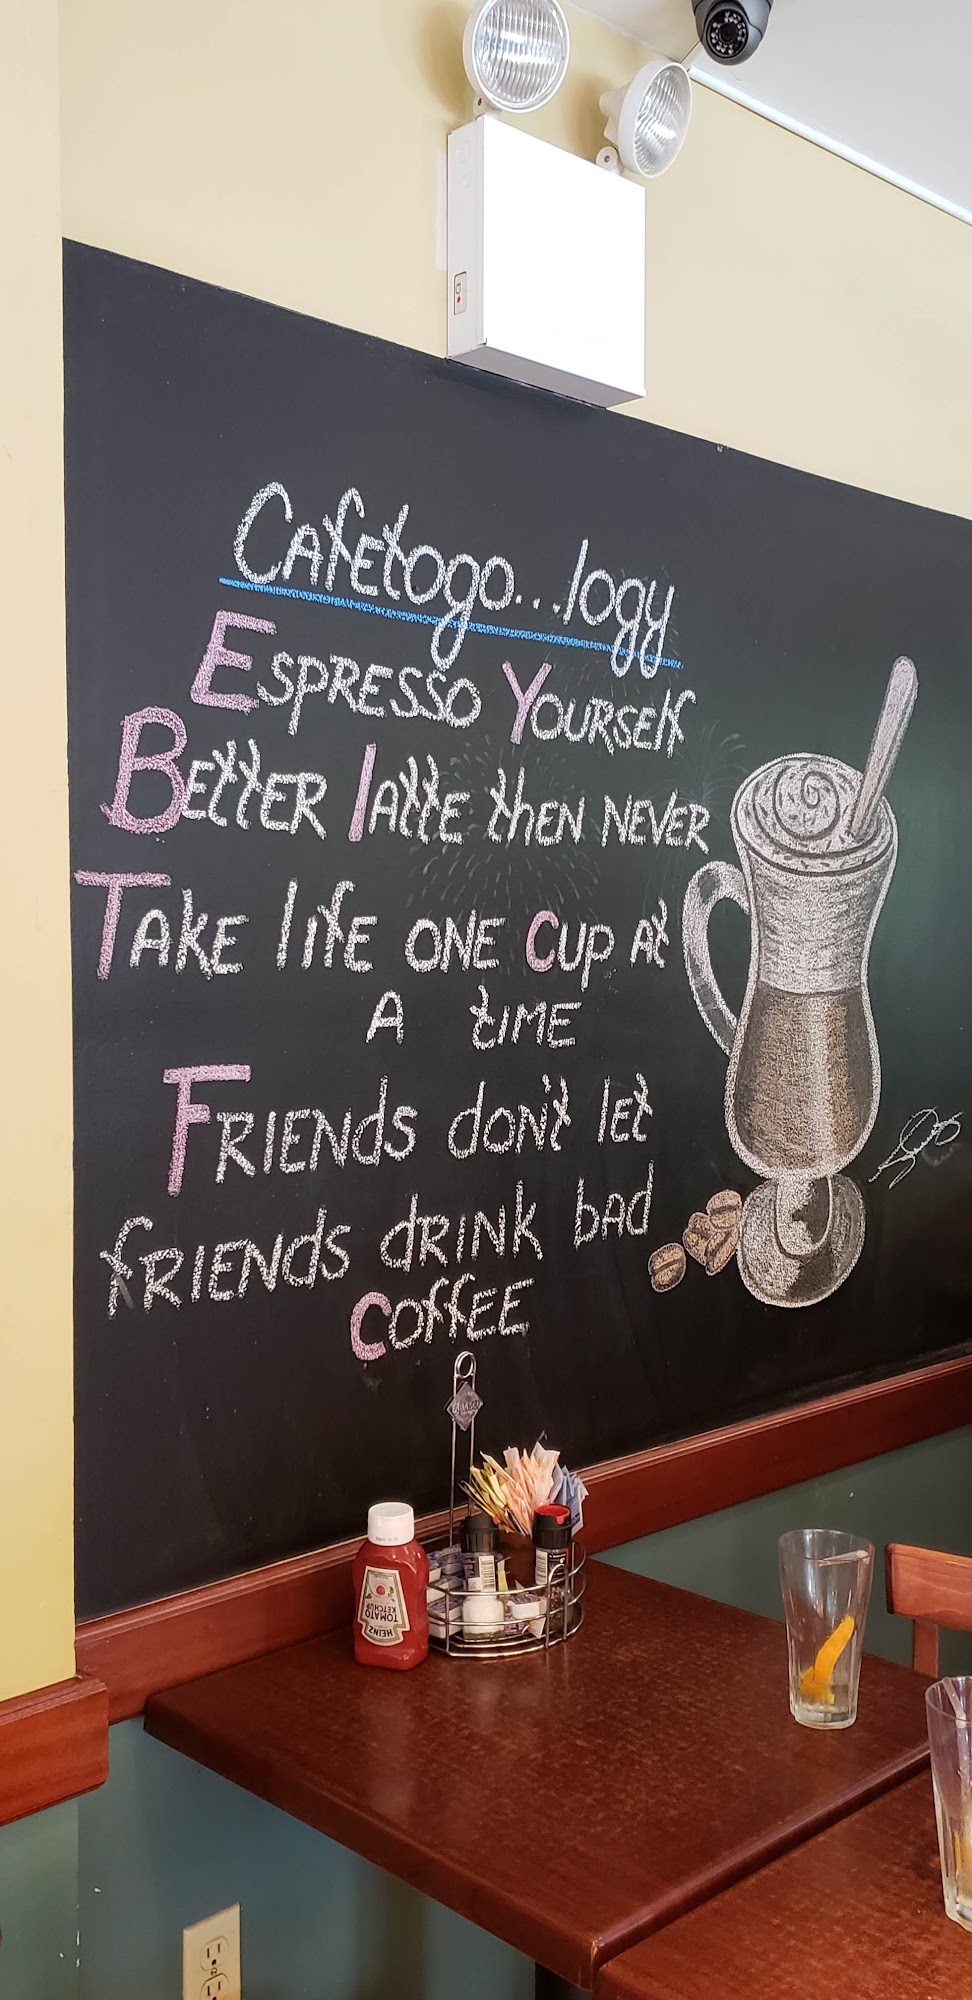 Cafetogo...logy
Espresso Yourself
Better latte then never
Take life one cup at
a time
Friends don't let
friends drink bad
coffee
HEINZ
TOMATO
KETCHUP